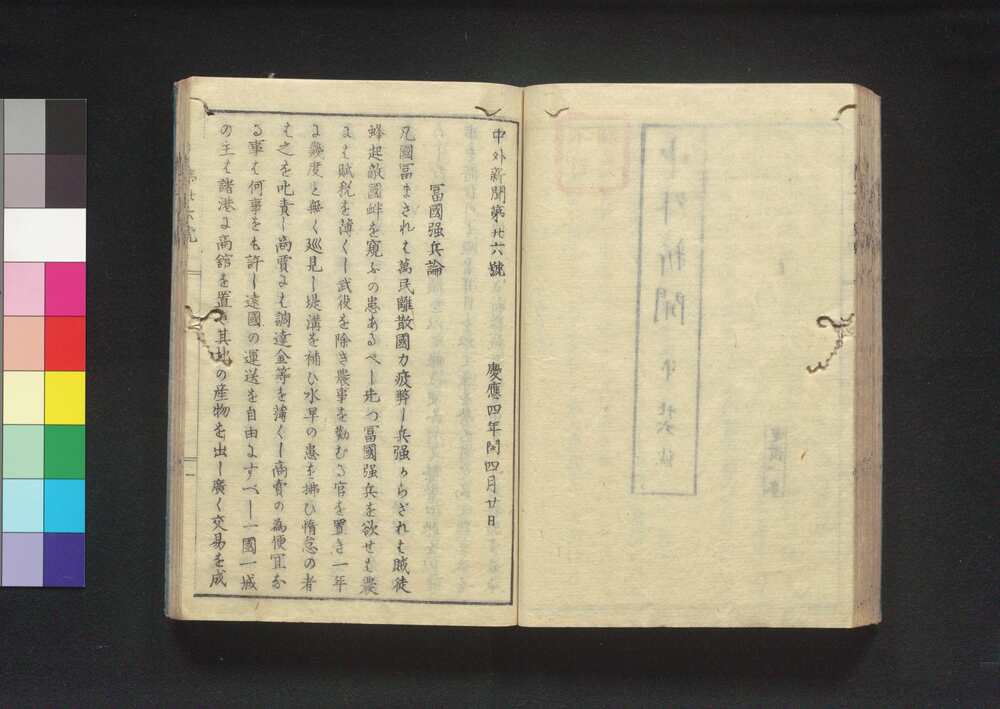 中外新聞第廿六號　慶應四年閏四月廿日
冨國强兵論
凡國冨まされハ萬民離散國力疲弊し兵强からざれハ賊徒
蜂起敵國衅を窺ふの患あるべし先つ冨國强兵を欲せハ農
にハ賦税を薄くし武役を除き農事を勸むる官を置き一年
に幾度と無く廵見し堤溝を補ひ水旱の患を拂ひ惰怠の者
ハ之を叱責し商賈にハ調達金等を薄くし商賣の為便宜な
る事ハ何事をも許し遠國の運送を自由にすべし一國一城
の主ハ諸港に商舘を置き其地の産物を出し廣く交易を成